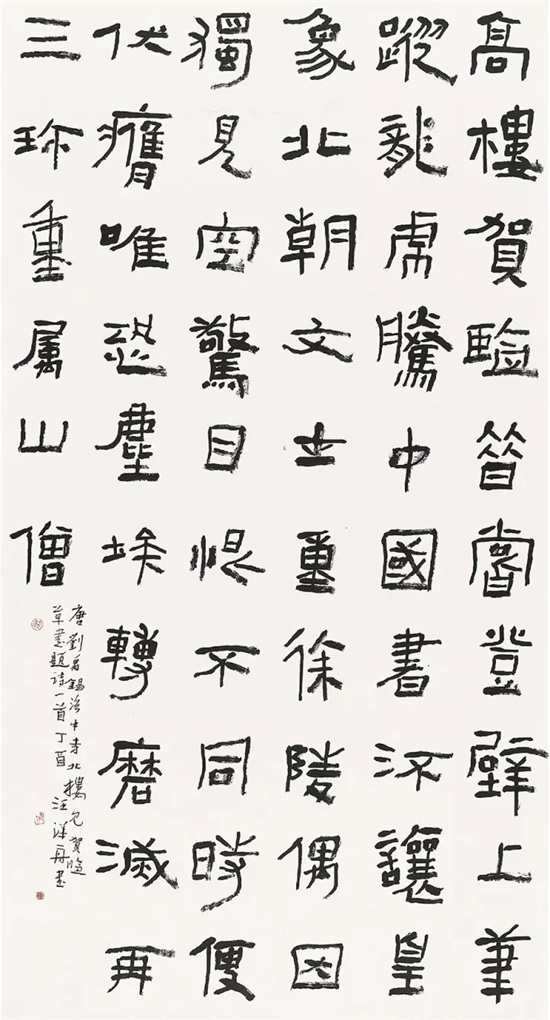 高樓賀監昔嘗登壁上筆
蹤龍虎騰中國書流讓皇
象北朝文士重徐陵偶因
獨見空驚目恨不同時便
伏膺唯恐塵埃轉磨滅再
三珎重属山僧
唐劉禹錫洛中寺北樓見賀監
草書題詩一首丁酉 汪書